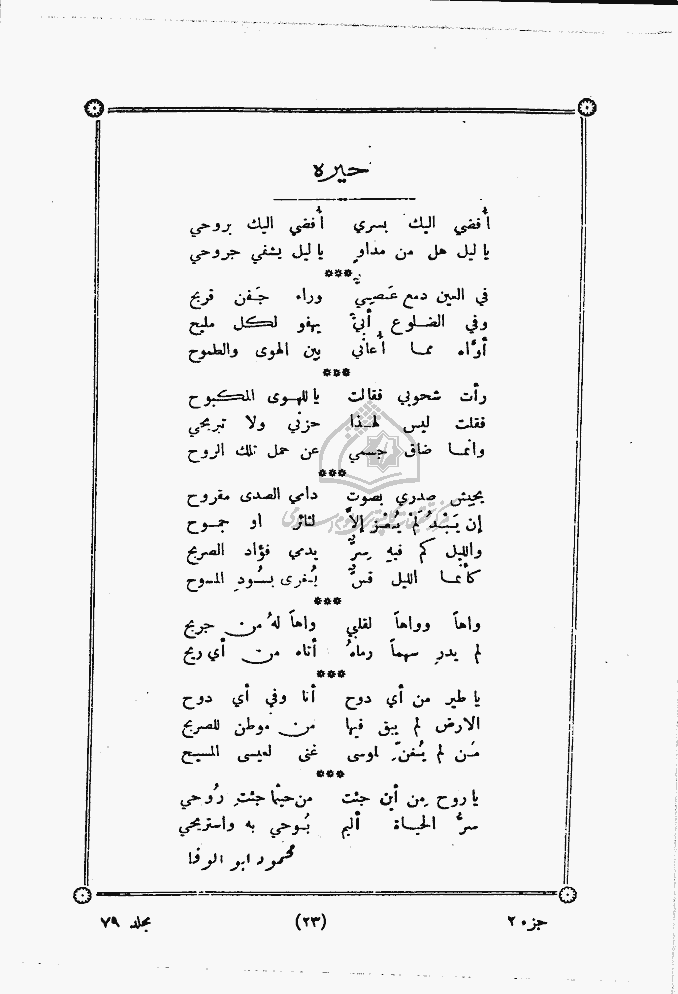 حيرة
أفضي اليك بسري أفضي اليك بروحي
يا ليل هل من مداوٍ يا ليل يشفي جروحي
***
في العين دمع عَصِيي وراء جَفن قريح
وفي الضلوع أبيّ يهفو لكل مليح
أواه مما أعاني بين الهوى والطموح
***
رأت شحوبي فقالت يا للهوى المكبوح
فقلت ليس لهذا حزني ولا تبريحي
وانما ضاق جسمي عن حمل تلك الروح
***
يجيش صدري بصوت دامي الصدى مقروح
إن يَبْدُ لَمْ يَعْزَ إلاَّ لثائر او جموح
والليل كم فيهِ سرٌّ يدمي فؤاد الصريح
كأنما الليل قسٌّ يُغرى بسُودِ المسوح
***
واهاً وواهاً لقلبي واهاً لهُ من جريح
لم يدرِ سهماً رماهُ أتاه من أي ريح
***
يا طير من أي دوح أنا وفي أي دوح
الارض لم يبق فيها من موطن للصريح
مَن لم يُغنِّ لموسى غنى لعيسى المسيح
***
يا روح من أين جئت من حيثما جئتِ رُوحي
سرُّ الحياة أليم بُوحي به واستريحي
محمود ابو الوفا
جزء ٢ (٢٣) مجلد ٧٩